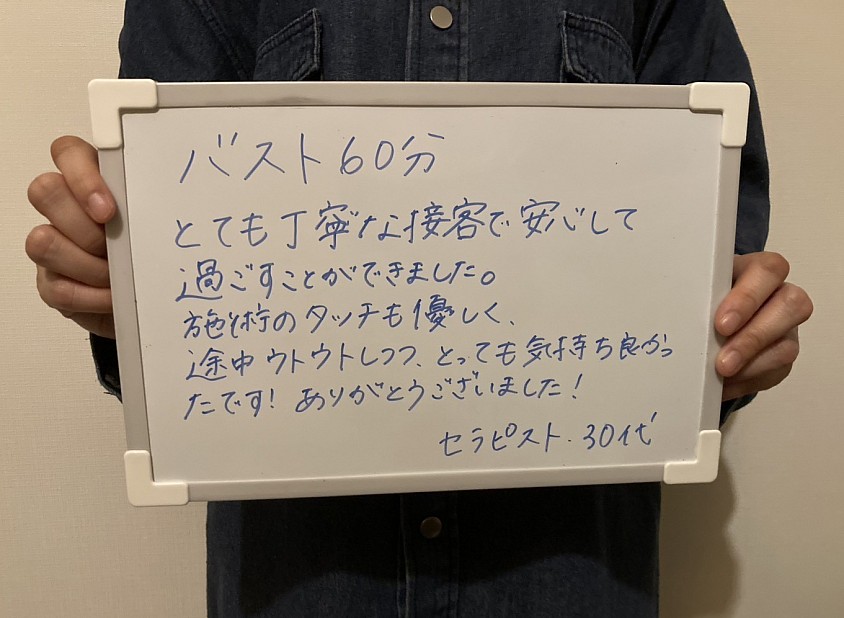 バスト60分
とても丁寧な接客で安心して
過ごすことができました。
施術のタッチも優しく、
途中ウトウトしつつ、とっても気持ち良かっ
たです！ありがとうございました！
セラピスト・30代